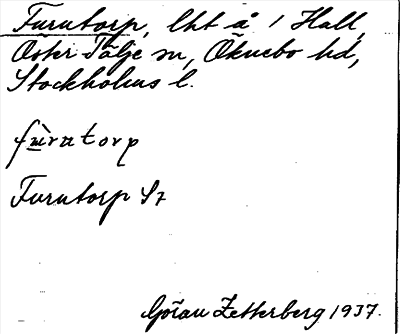 Furutorp, lht å 1 Hall,
Öster-Tälje sn, Öknebo hd,
Stockholms l.
fùrɯtorp
Furutorp S7
Göran Zetterberg 1937.